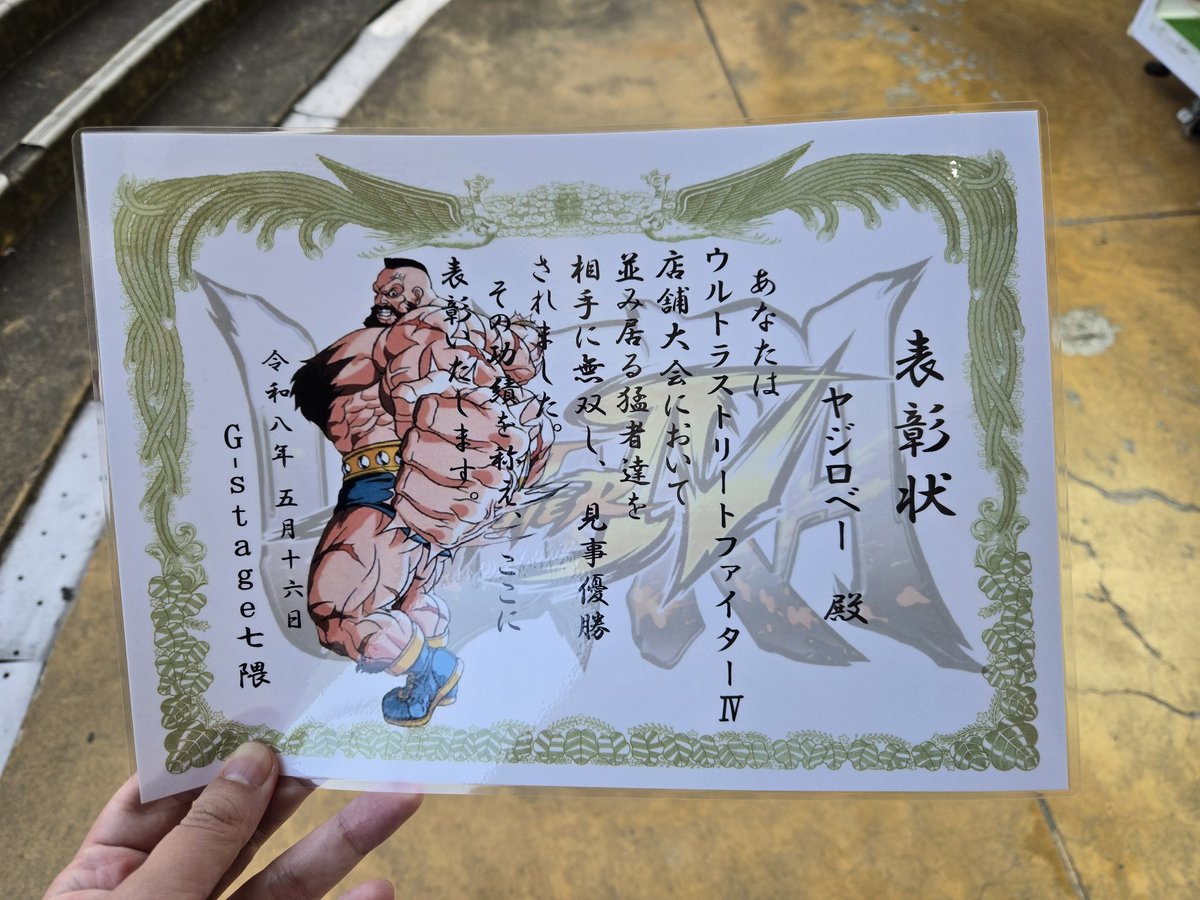 表彰状
ヤジロベー 殿
あなたは
ウルトラストリートファイターⅣ
店舗大会において
並み居る猛者達を
相手に無双し、見事優勝
されました。
その功績を称え、ここに
表彰いたします。
令和八年 五月十六日
G-stage七隈